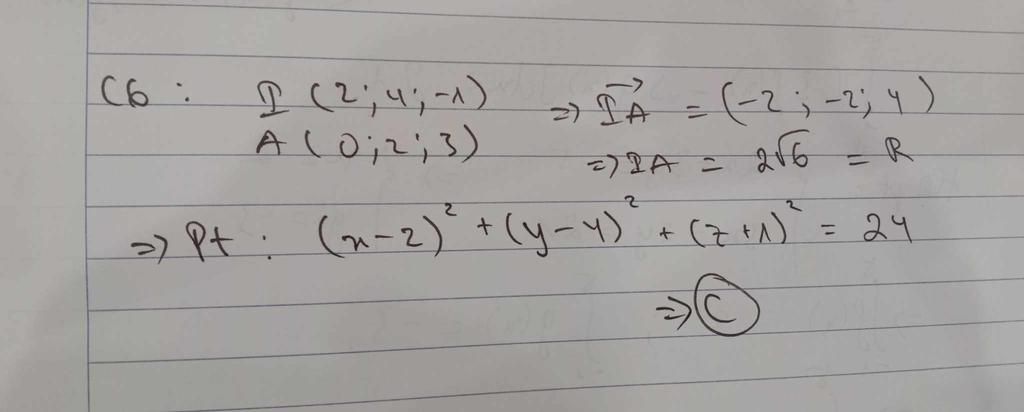 C6 : I (2; 4; -1) => \overrightarrow{IA} = (-2; -2; 4)
A (0; 2; 3) => IA = 2√6 = R
=> Pt : (x-2)² + (y-4)² + (z+1)² = 24
=> C